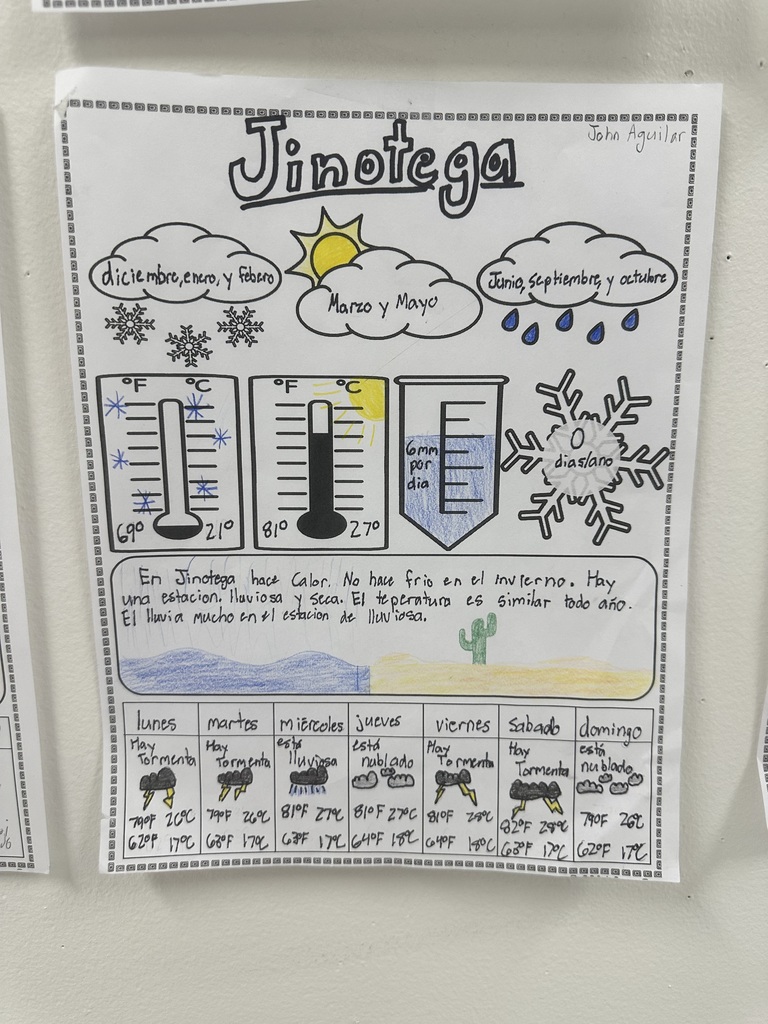 John Aguilar
Jinotega
diciembre, enero, y febero
Marzo y Mayo
Junio, septiembre, y octubre
°F °C
69° 21°
°F °C
81° 27°
6mm
por
dia
0
dias/ano
En Jinotega hace Calor. No hace frio en el invierno. Hay
una estacion. lluviosa y seca. El teperatura es similar todo año.
El lluvia mucho en el estacion de lluviosa.
lunes martes miércoles jueves viernes sabado domingo
Hay Tormenta
79°F 26°C
62°F 17°C
Hay Tormenta
79°F 26°C
63°F 17°C
está lluviosa
81°F 27°C
63°F 17°C
está nublado
81°F 27°C
64°F 18°C
Hay Tormenta
81°F 28°C
64°F 18°C
Hay Tormenta
82°F 28°C
63°F 17°C
está nublado
79°F 26°C
62°F 17°C